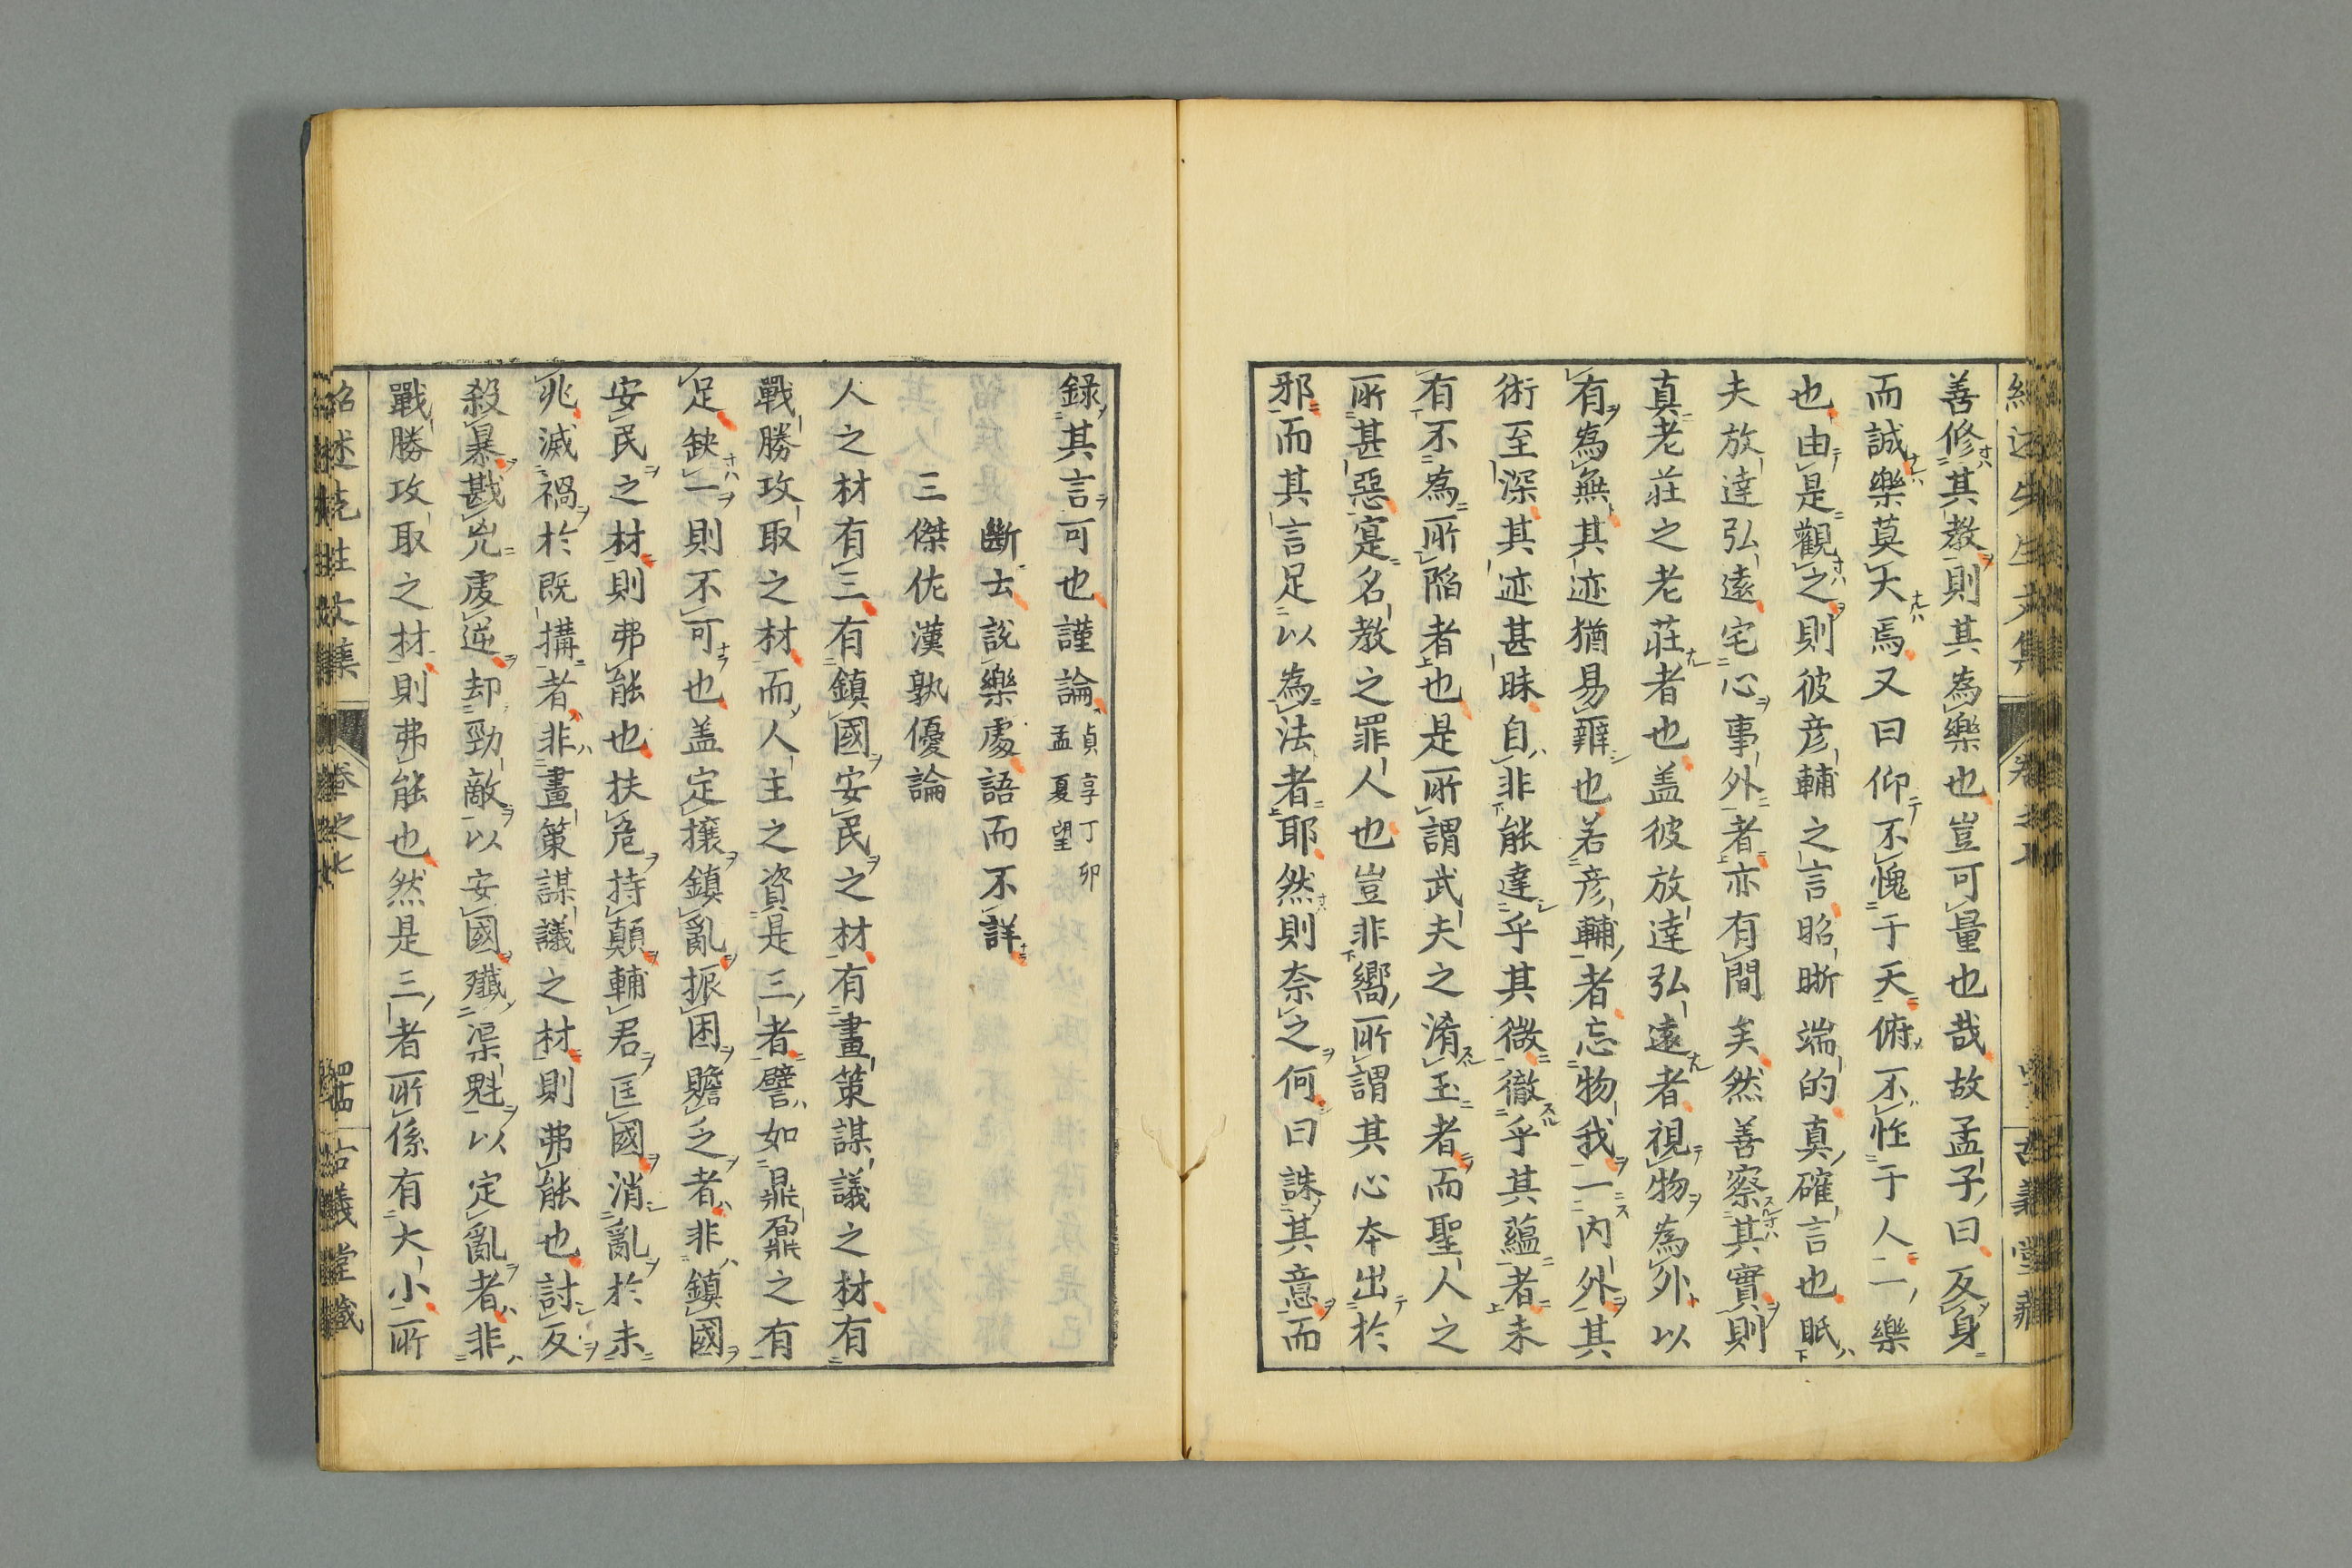 善修其教則其為樂也豈可量也哉故孟子曰反身
而誠樂莫大焉又曰仰不愧于天俯不怍于人二樂
也由是觀之則彼彦輔之言昭晰端的真確言也眂
夫放達弘遠宅心事外者亦有間矣然善察其實則
真老莊之老莊者也盖彼放達弘遠者視物為外以
有為無其迹猶易辨也若彦輔者忘物我一内外其
術至深其迹甚昧自非能達乎其微徹乎其蘊者未
有不為所陷者也是所謂武夫之淆玉者而聖人之
所甚惡寔名教之罪人也豈非嚮所謂其心本出於
邪而其言足以為法者耶然則奈之何曰誅其意而
録其言可也謹論 貞享丁卯孟夏望
斷去説樂處語而不詳
三傑佐漢孰優論
人之材有三有鎮國安民之材有畫策謀議之材有
戰勝攻取之材而人主之資是三者譬如鼎鼐之有
足缺一則不可也盖定攘鎮亂振困贍乏者非鎮國
安民之材則弗能也扶危持顛輔君匡國消亂於未
兆滅禍於既搆者非畫策謀議之材則弗能也討反
殺暴戡兇虔逆却勁敵以安國殲渠魁以定亂者非
戰勝攻取之材則弗能也然是三者所係有大小所
紹述先生文集 卷之七 古義堂藏